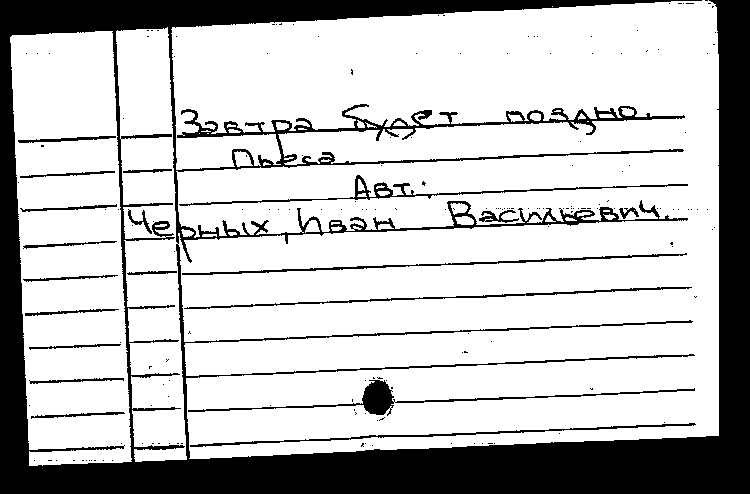 Завтра будет поздно.
Пьеса.
Авт.:
Черных, Иван Васильевич.